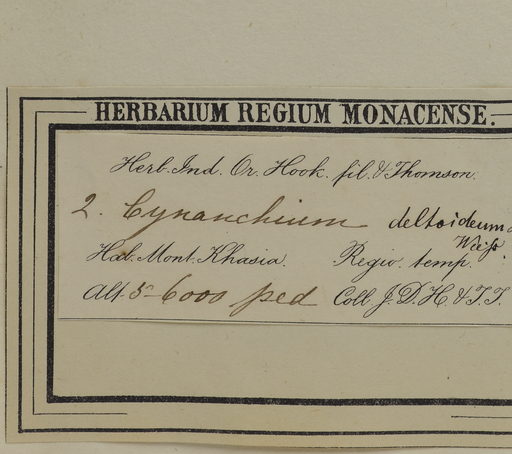 HERBARIUM REGIUM MONACENSE.
Herb. Ind. Or. Hook. fil. & Thomson.
2. Cynanchium deltoideum
Hab. Mont. Khasia. Regio. temp.
Alt. 5-6000 ped Coll. J. D. H. & T. T.